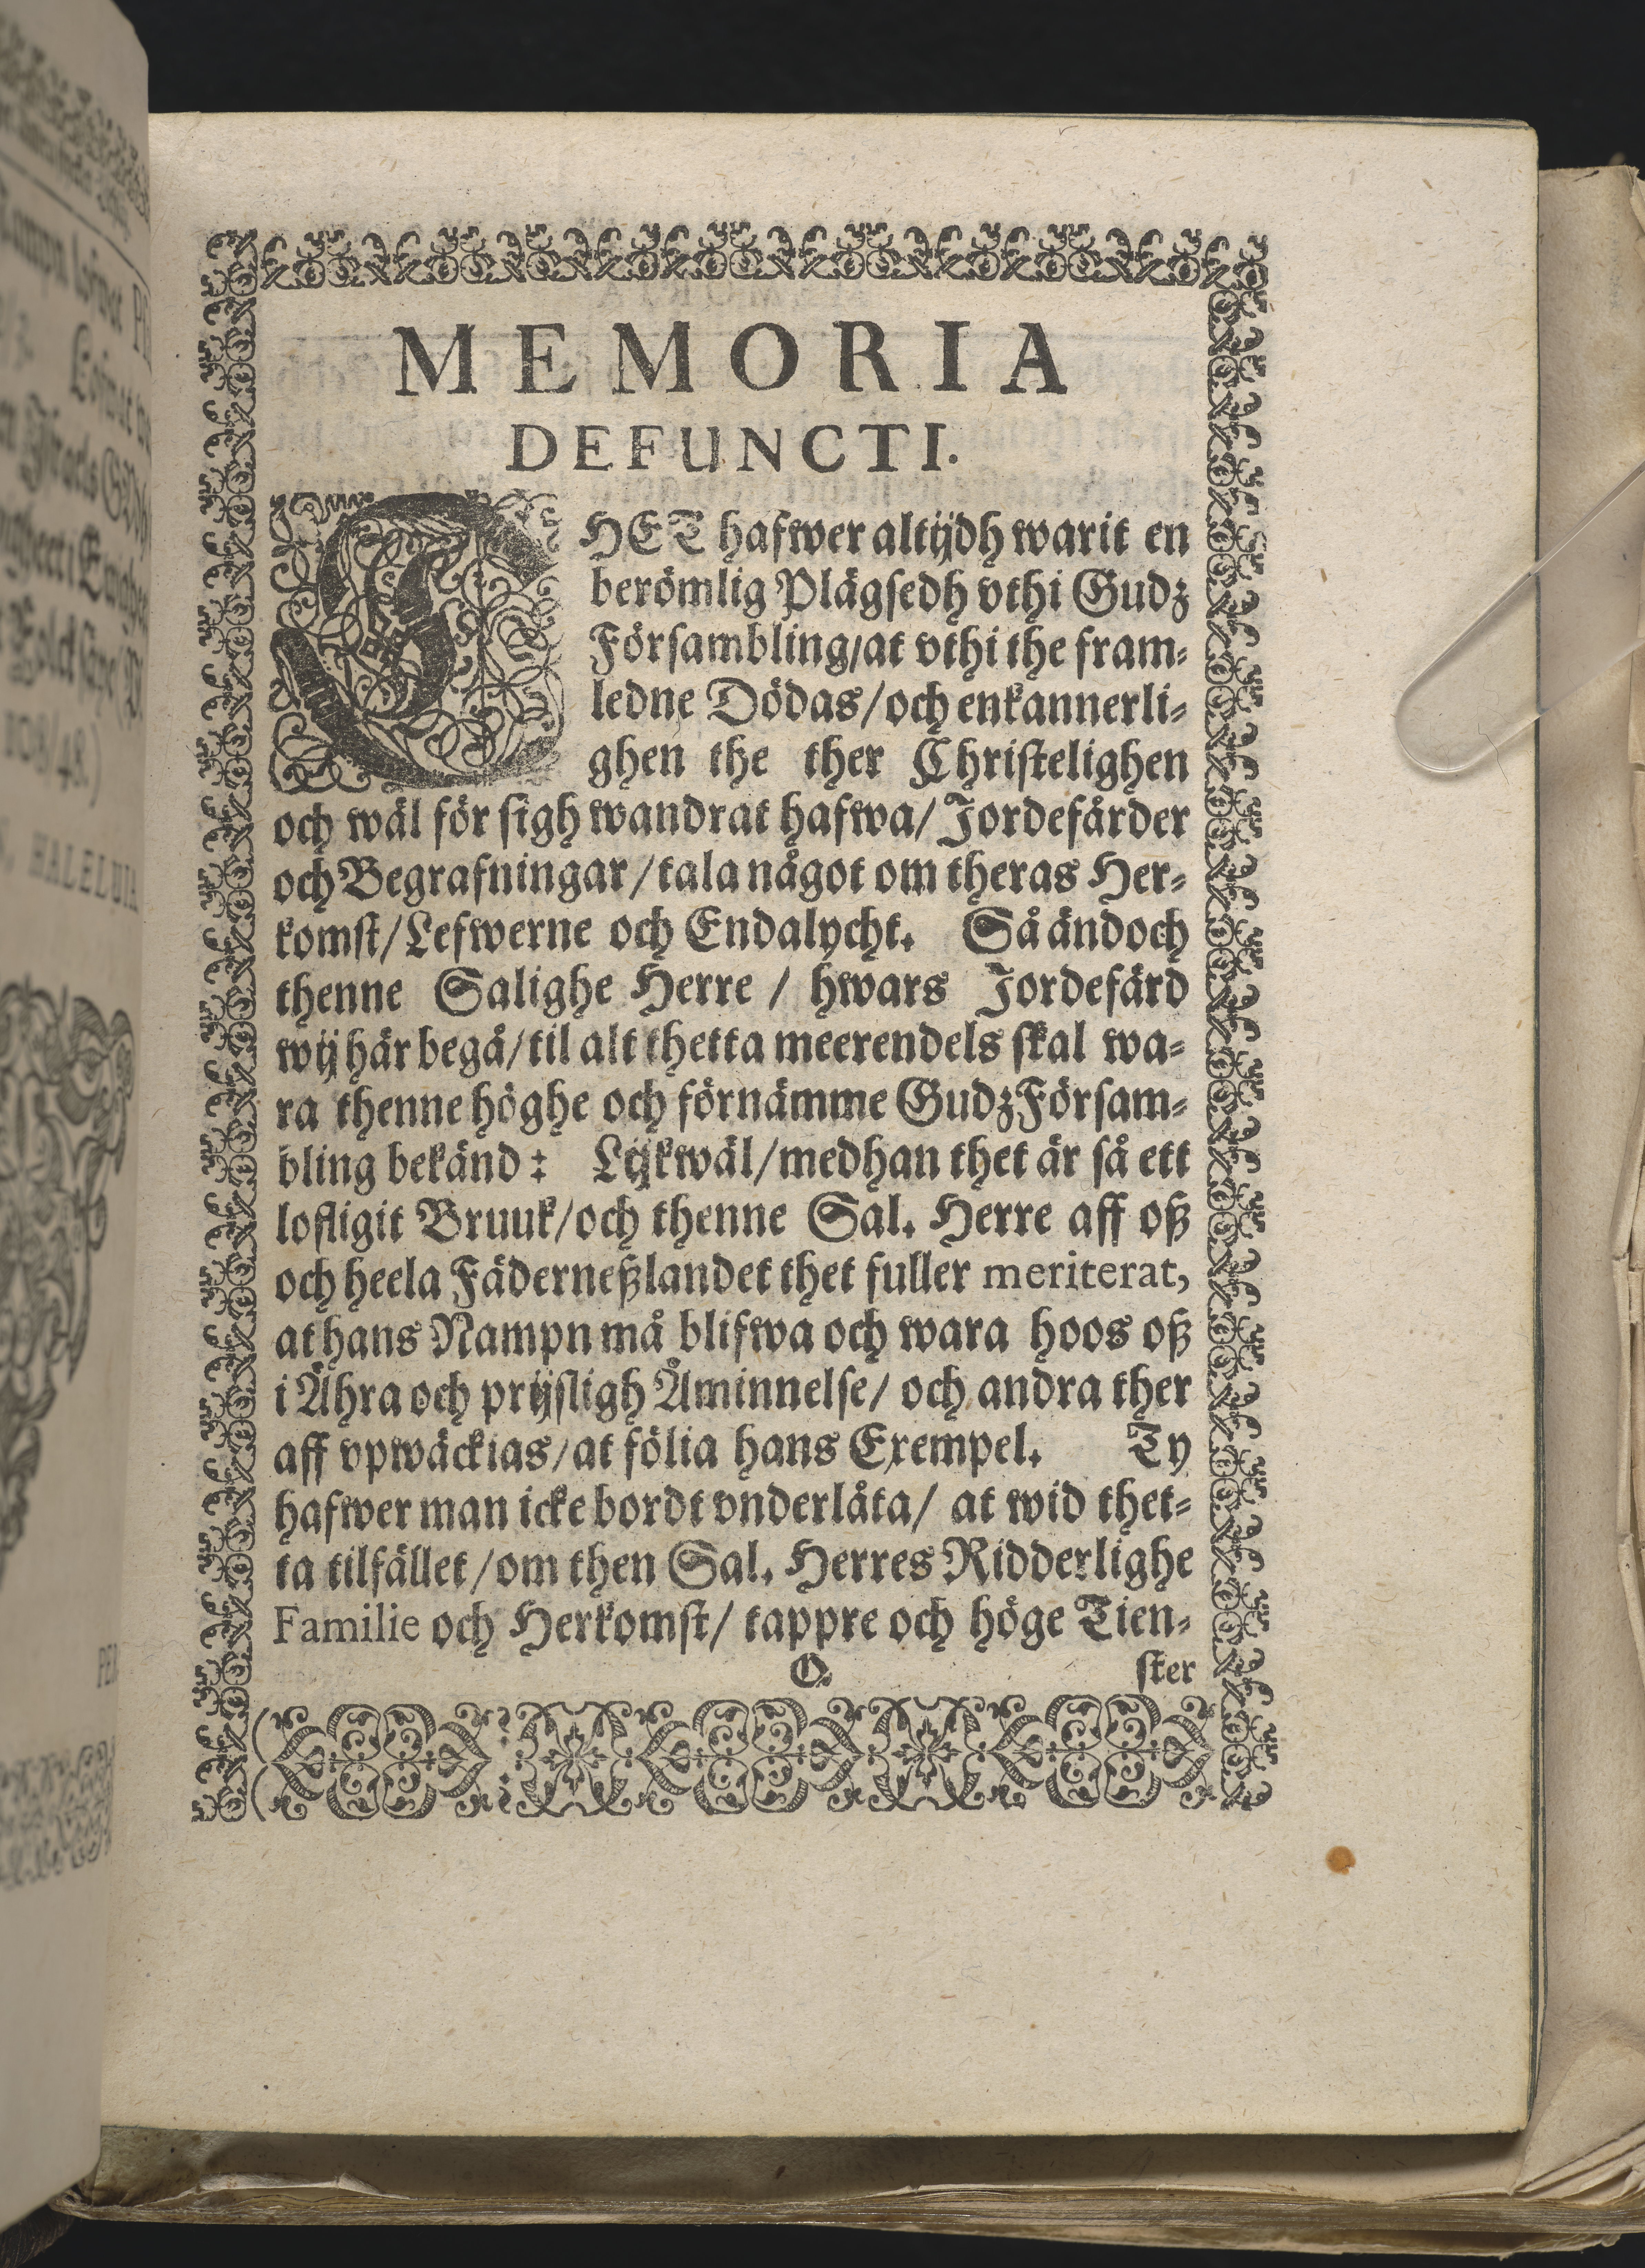 MEMORIA
DEFUNCTI.
THET hafwer altijdh warit en
berömlig Plägsedh vthi Gudz
Försambling/at vthi the fram-
ledne Dödas/och enkannerli-
ghen the ther Christelighen
och wäl för sigh wandrat hafwa/Jordefärder
och Begrafningar/tala något om theras Her-
komst/Lefwerne och Endalycht. Så ändoch
thenne Salighe Herre / hwars Jordefärd
wij här begå/til alt thetta meerendels skal wa-
ra thenne höghe och förnämme Gudz Försam-
bling bekänd: Lijkwäl/medhan thet är så ett
lofligit Bruuk/och thenne Sal. Herre aff oß
och heela Fäderneßlandet thet fuller meriterat,
at hans Nampn må blifwa och wara hoos oß
i Ähra och prijsligh Åminnelse/ och andra ther
aff vpwäckias/at fölia hans Exempel. Ty
hafwer man icke bordt vnderlåta/ at wid thet-
ta tilfället/om then Sal. Herres Ridderlighe
Familie och Herkomst/ tappre och höge Tien-
O. ster
HALELUIA